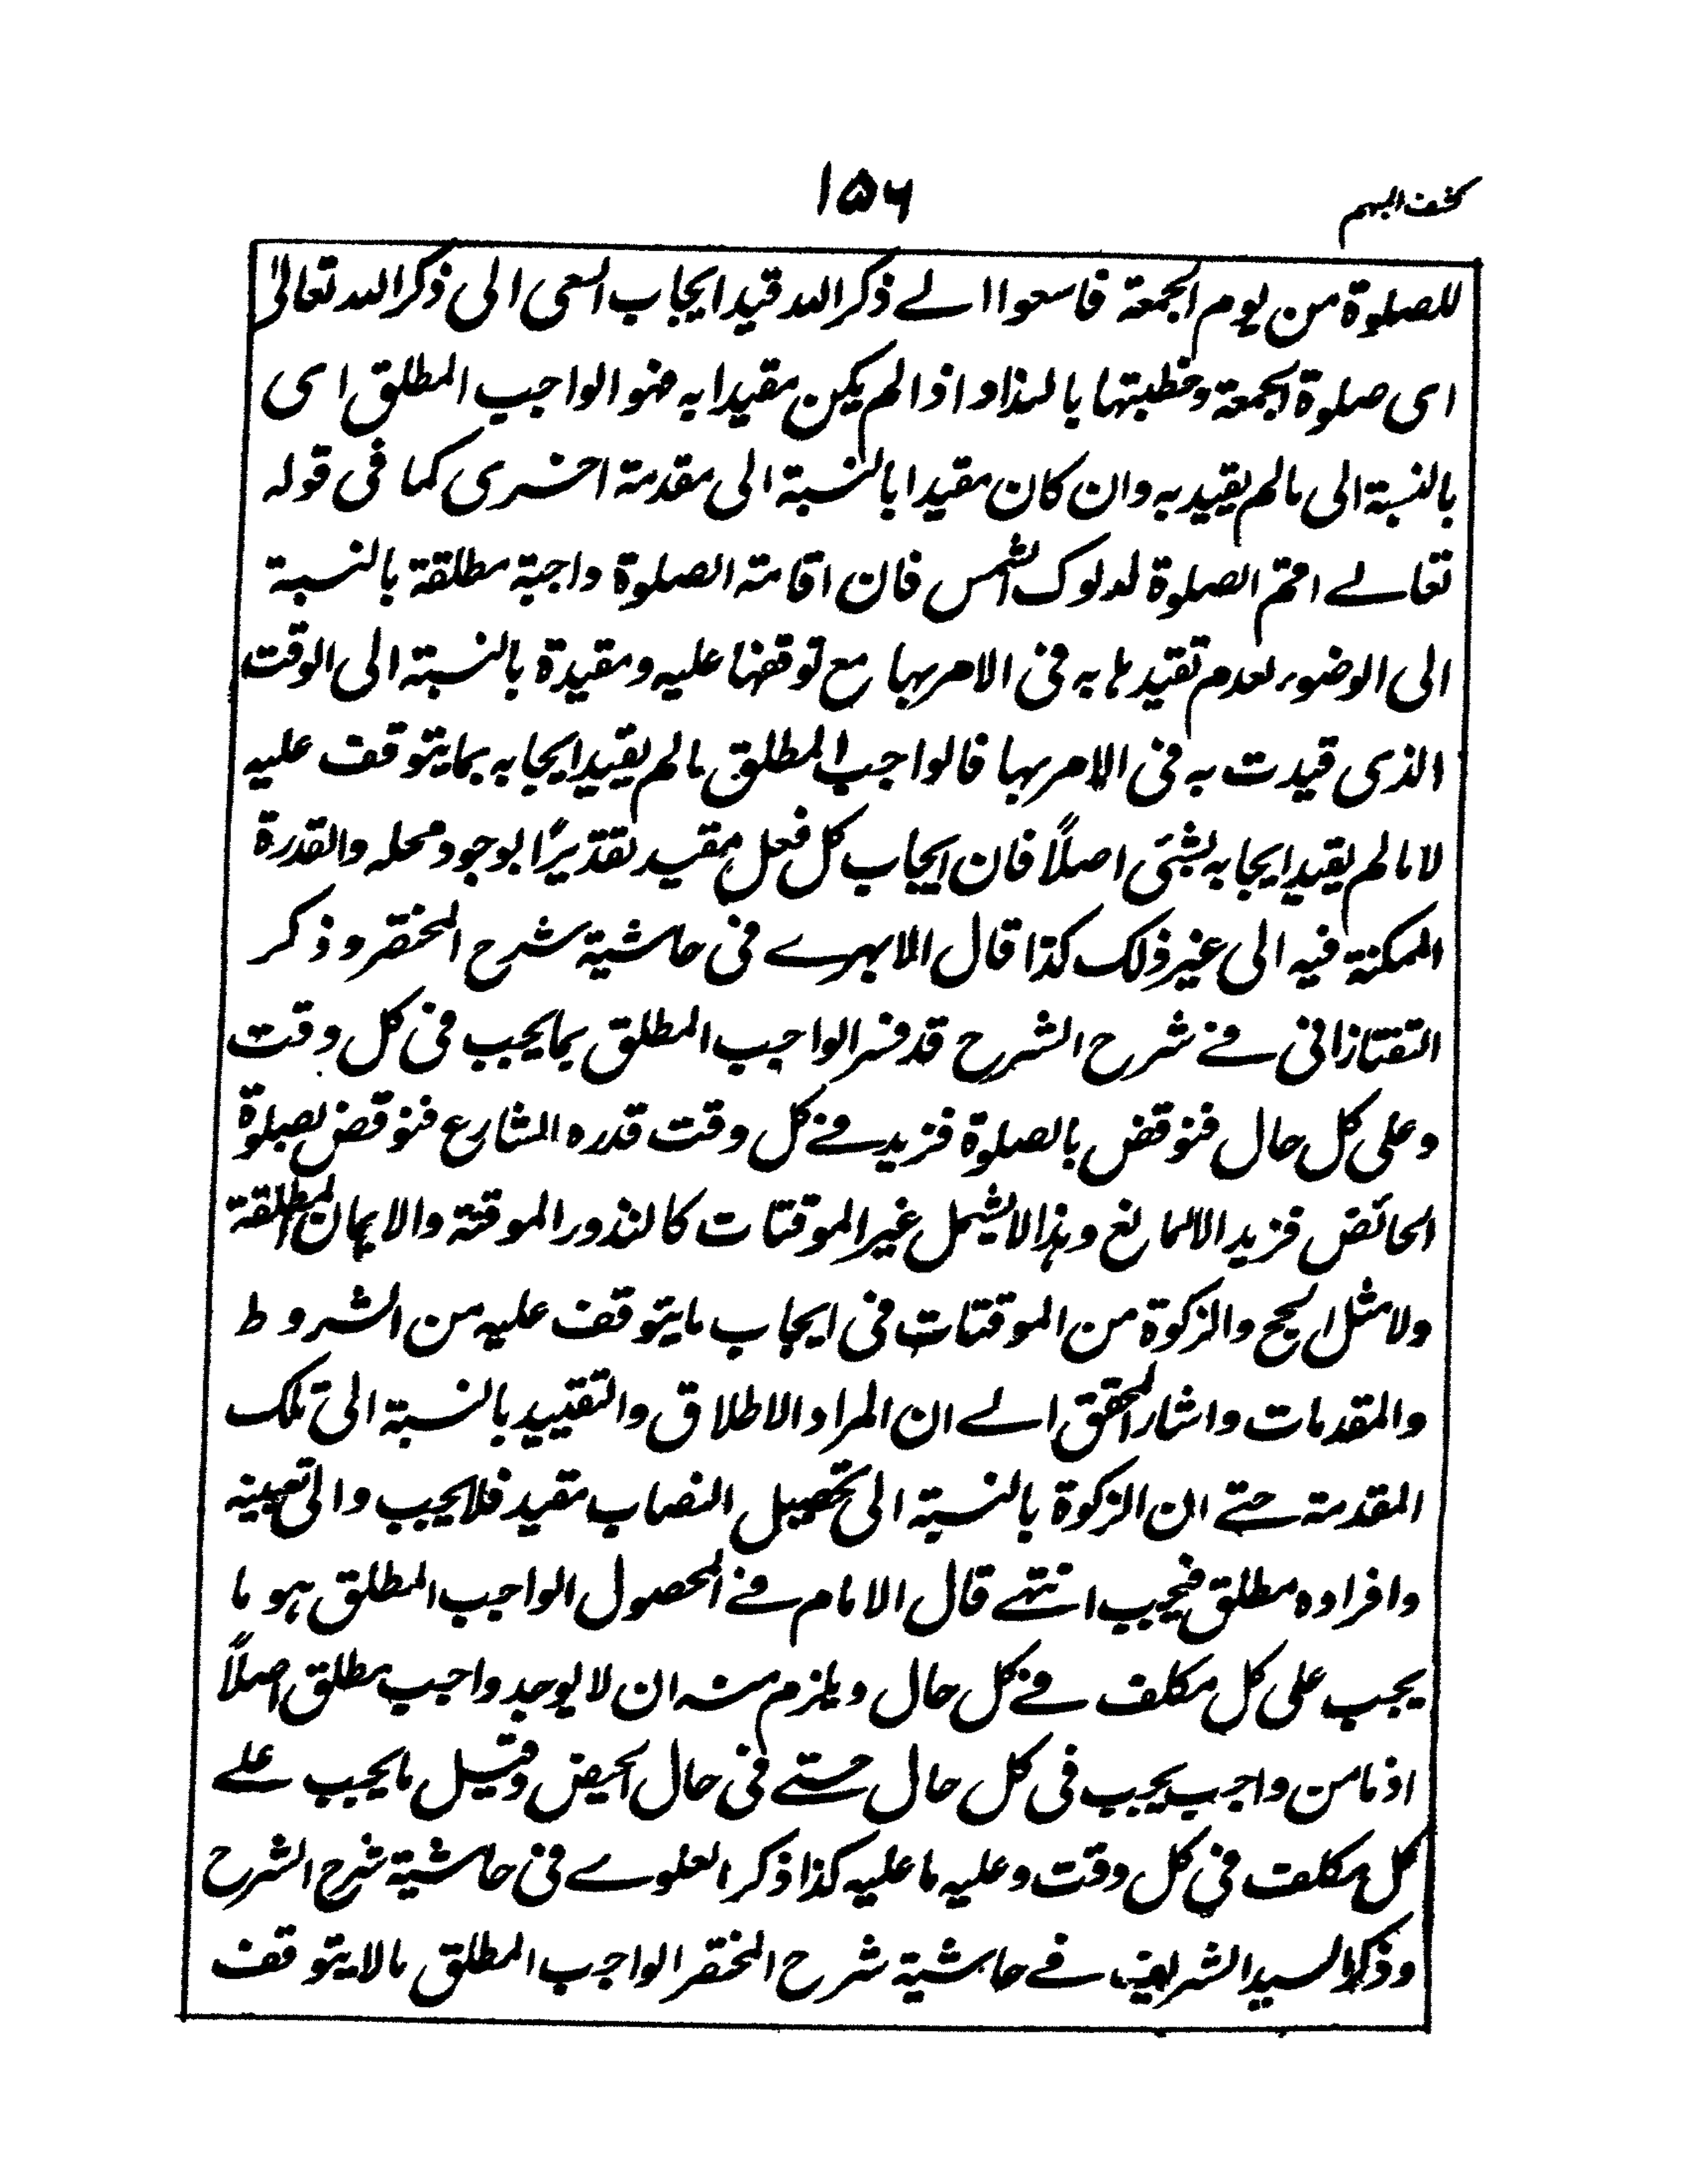 كشف المبهم
۱۵۶
للصلوة من يوم الجمعة فاسعوا الے ذكر الله قيد ايجاب السعى الى ذكر الله تعالىٰ
اى صلوة الجمعة وخطبتها بالنداء واذا لم يكن مقيدا به فهو الواجب المطلق اى
بالنسبة الى مالم يقيد به وان كان مقيدا بالنسبة الى مقدمة اخرى كما فى قوله
تعالے اقم الصلوة لدلوك الشمس فان اقامة الصلوة واجبة مطلقة بالنسبة
الى الوضوء لعدم تقيدها به فى الامر بها مع توقفها عليه ومقيدة بالنسبة الى الوقت
الذى قيدت به فى الامر بها فالواجب المطلق مالم يقيد ايجابه بما يتوقف عليه
لا مالم يقيد ايجابه بشئى اصلاً فان ايجاب كل فعل مقيد تقديرًا بوجود محله والقدرة
الممكنة فيه الى غير ذلك كذا قال الابهرے فى حاشية شرح المختصر وذكر
التفتازانى فے شرح الشرح قد فسر الواجب المطلق بما يجب فى كل وقت
وعلى كل حال فنوقض بالصلوة فزيد فے كل وقت قدره الشارع فنوقض بصلوة
الحائض فزيد الا لمانع وهذا لا يشمل غير الموقتات كالنذور الموقتة والايمان المطلقة
ولا مثل الحج والزكوة من الموقتات فى ايجاب ما يتوقف عليه من الشروط
والمقدمات واشار المحقق الے ان المراد الاطلاق والتقييد بالنسبة الى تلك
المقدمة حتے ان الزكوة بالنسبة الى تحصيل النصاب مقيد فلا يجب والى تعيينه
وافراده مطلق فيجب انتهے قال الامام فے المحصول الواجب المطلق هو ما
يجب على كل مكلف فے كل حال ويلزم منه ان لا يوجد واجب مطلق اصلاً
اذ ما من واجب يجب فى كل حال حتے فى حال الحيض وقيل ما يجب علے
كل مكلف فى كل وقت وعليه ما عليه كذا ذكر العلوے فى حاشية شرح الشرح
وذكر السيد الشريف فے حاشية شرح المختصر الواجب المطلق مالا يتوقف